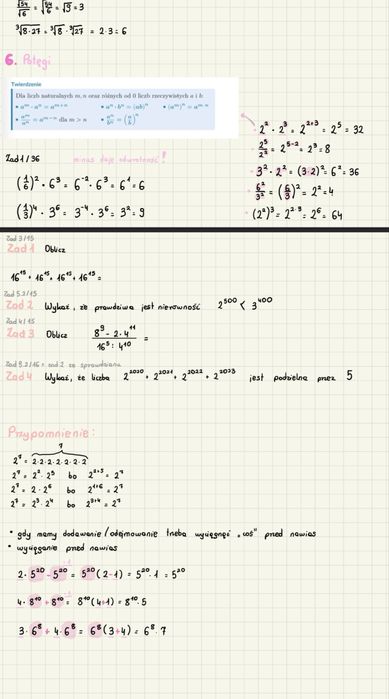 √54/√6 = √54/6 = √9 = 3
³√8·27 = ³√8 · ³√27 = 2·3 = 6
6. Potęgi
Twierdzenie
Dla liczb naturalnych m, n oraz różnych od 0 liczb rzeczywistych a i b:
• aᵐ · aⁿ = aᵐ⁺ⁿ • aⁿ · bⁿ = (ab)ⁿ • (aⁿ)ᵐ = aᵐ·ⁿ
• aᵐ/aⁿ = aᵐ⁻ⁿ dla m > n • aⁿ/bⁿ = (a/b)ⁿ
2² · 2³ = 2²⁺³ = 2⁵ = 32
2⁵/2² = 2⁵⁻² = 2³ = 8
3² · 2² = (3·2)² = 6² = 36
6²/3² = (6/3)² = 2² = 4
(2²)³ = 2²·³ = 2⁶ = 64
Zad 1/36 minus daje odwrotność!
(1/6)² · 6³ = 6⁻² · 6³ = 6¹ = 6
(1/3)⁴ · 3⁶ = 3⁻⁴ · 3⁶ = 3² = 9
Zad 3/15
Zad 1 Oblicz
16¹⁵ + 16¹⁵ + 16¹⁵ + 16¹⁵ =
Zad 5.2/15
Zad 2 Wykaż, że prawdziwa jest nierówność 2⁵⁰⁰ < 3⁴⁰⁰
Zad 4/15
Zad 3 Oblicz 8⁹ - 2·4¹¹ / 16⁵ : 4¹⁰ =
Zad 4 Wykaż, że liczba 2²⁰²⁰ + 2²⁰²¹ + 2²⁰²² + 2²⁰²³ jest podzielna przez 5
Przypomnienie:
7
2⁷ = 2·2·2·2·2·2·2
2⁷ = 2² · 2⁵ bo 2²⁺⁵ = 2⁷
2⁷ = 2 · 2⁶ bo 2¹⁺⁶ = 2⁷
2⁷ = 2³ · 2⁴ bo 2³⁺⁴ = 2⁷
* gdy mamy dodawanie/odejmowanie trzeba wyciągnąć „coś" przed nawias
* wyciąganie przed nawias
2·5²⁰ - 5²⁰ = 5²⁰(2-1) = 5²⁰·1 = 5²⁰
4·8¹⁰ + 8¹⁰ = 8¹⁰(4+1) = 8¹⁰·5
3·6⁸ + 4·6⁸ = 6⁸(3+4) = 6⁸·7